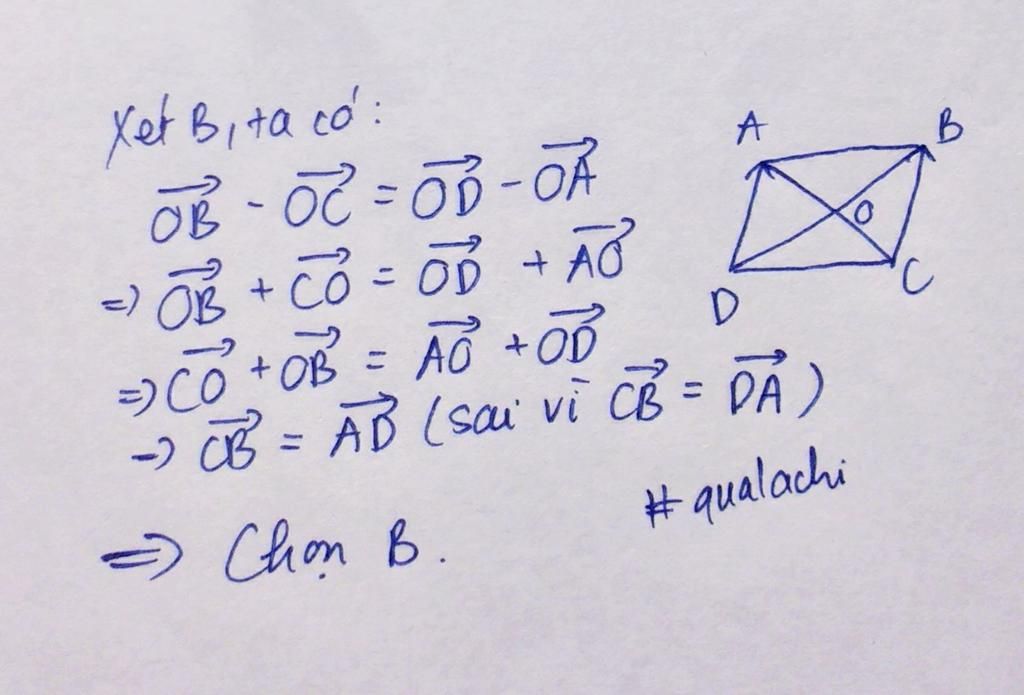 Xét B, ta có:
$\overrightarrow{OB} - \overrightarrow{OC} = \overrightarrow{OD} - \overrightarrow{OA}$
=> $\overrightarrow{OB} + \overrightarrow{CO} = \overrightarrow{OD} + \overrightarrow{AO}$
=> $\overrightarrow{CO} + \overrightarrow{OB} = \overrightarrow{AO} + \overrightarrow{OD}$
-> $\overrightarrow{CB} = \overrightarrow{AD}$ (sai vì $\overrightarrow{CB} = \overrightarrow{DA}$)
=> Chọn B.
#qualachi
A B
O
D C